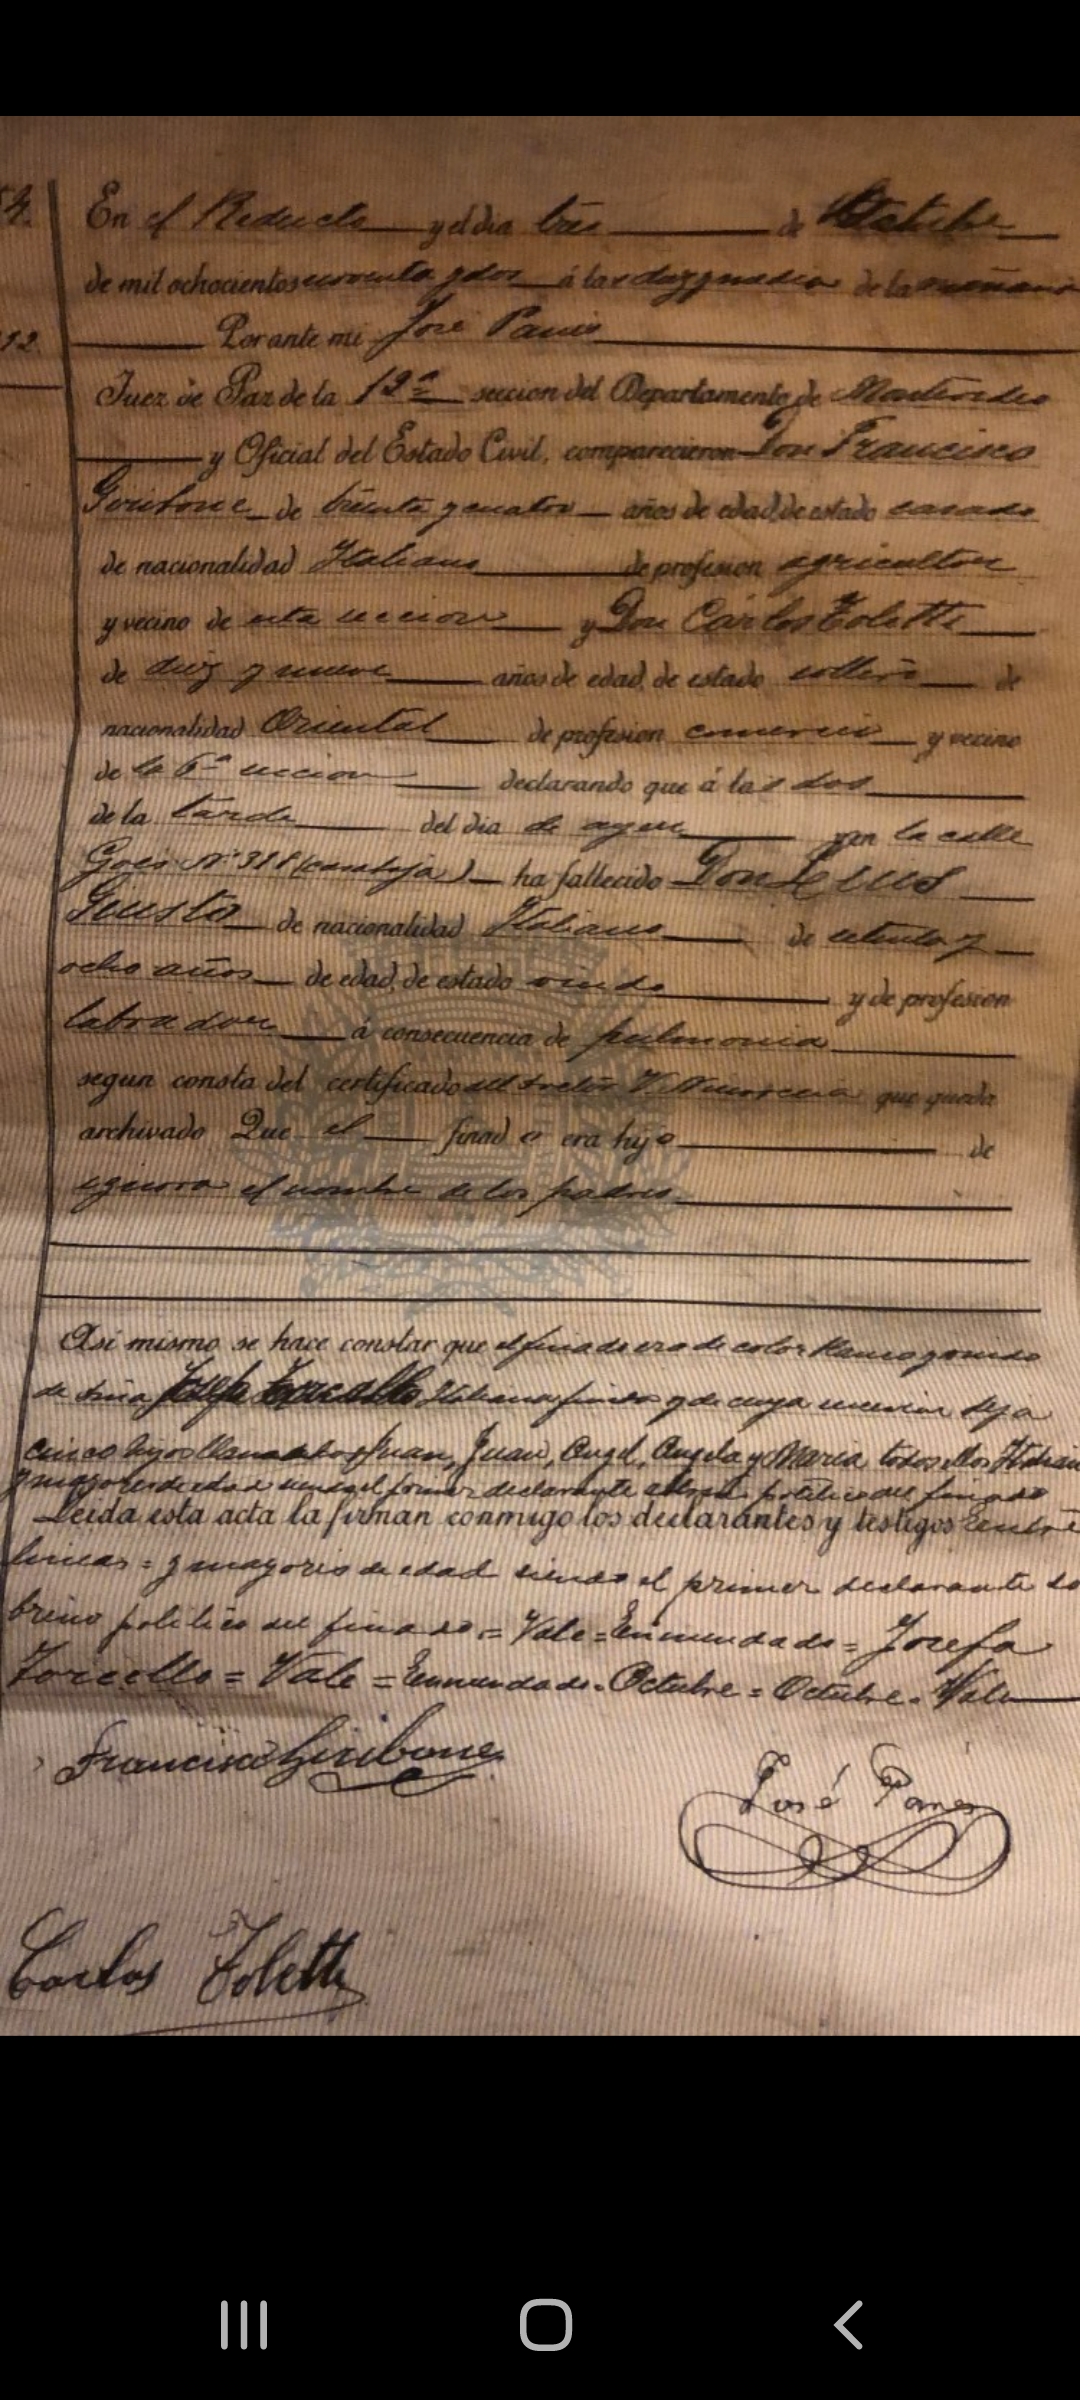 En el Reducto y el dia tres de Octubre
de mil ochocientos noventa y dos á las diez y media de la mañana
Por ante mi José Panis
Juez de Paz de la 12ª seccion del Departamento de Montevideo
y Oficial del Estado Civil, comparecieron Don Francisco
Giribone de treinta y cuatro años de edad, de estado casado
de nacionalidad Italiano de profesion agricultor
y vecino de esta seccion y Don Cárlos Toletti
de diez y nueve años de edad, de estado soltero de
nacionalidad Oriental de profesion comercio y vecino
de la 6ª seccion declarando que á las dos
de la tarde del dia de ayer y en la calle
Goes Nº 318 ha fallecido Don Luis
Giusto de nacionalidad Italiano de setenta y
ocho años de edad, de estado viudo y de profesion
labrador á consecuencia de pulmonia
segun consta del certificado del doctor V. que queda
archivado Que el finado era hijo de
ignora el nombre de los padres
Asi mismo se hace constar que el finado era de color blanco y viudo
de Josefa Torcello Italiana y de cuya union deja
cinco hijos llamados Juan, Juan, Angel, Angela y Maria todos ellos Italianos
y mayores de edad siendo el primer declarante sobrino politico del finado
Leida esta acta la firman conmigo los declarantes y testigos Entre
lineas = y mayores de edad siendo el primer declarante so
brino politico del finado = Vale = Enmendado = Josefa
Torcello = Vale = Enmendado = Octubre = Octubre = Vale
Francisco Giribone
José Panis
Carlos Toletti